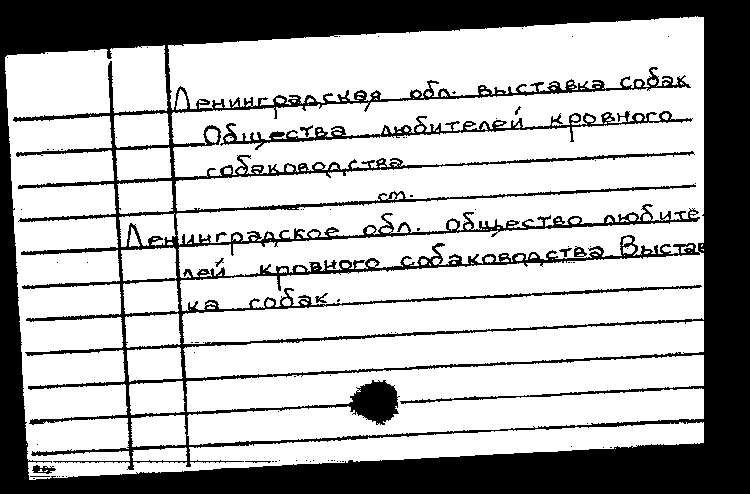 Ленинградская обл. выставка собак
Общества любителей кровного
собаководства
см.
Ленинградское обл. общество любите-
лей кровного собаководства. Выстав
ка собак.